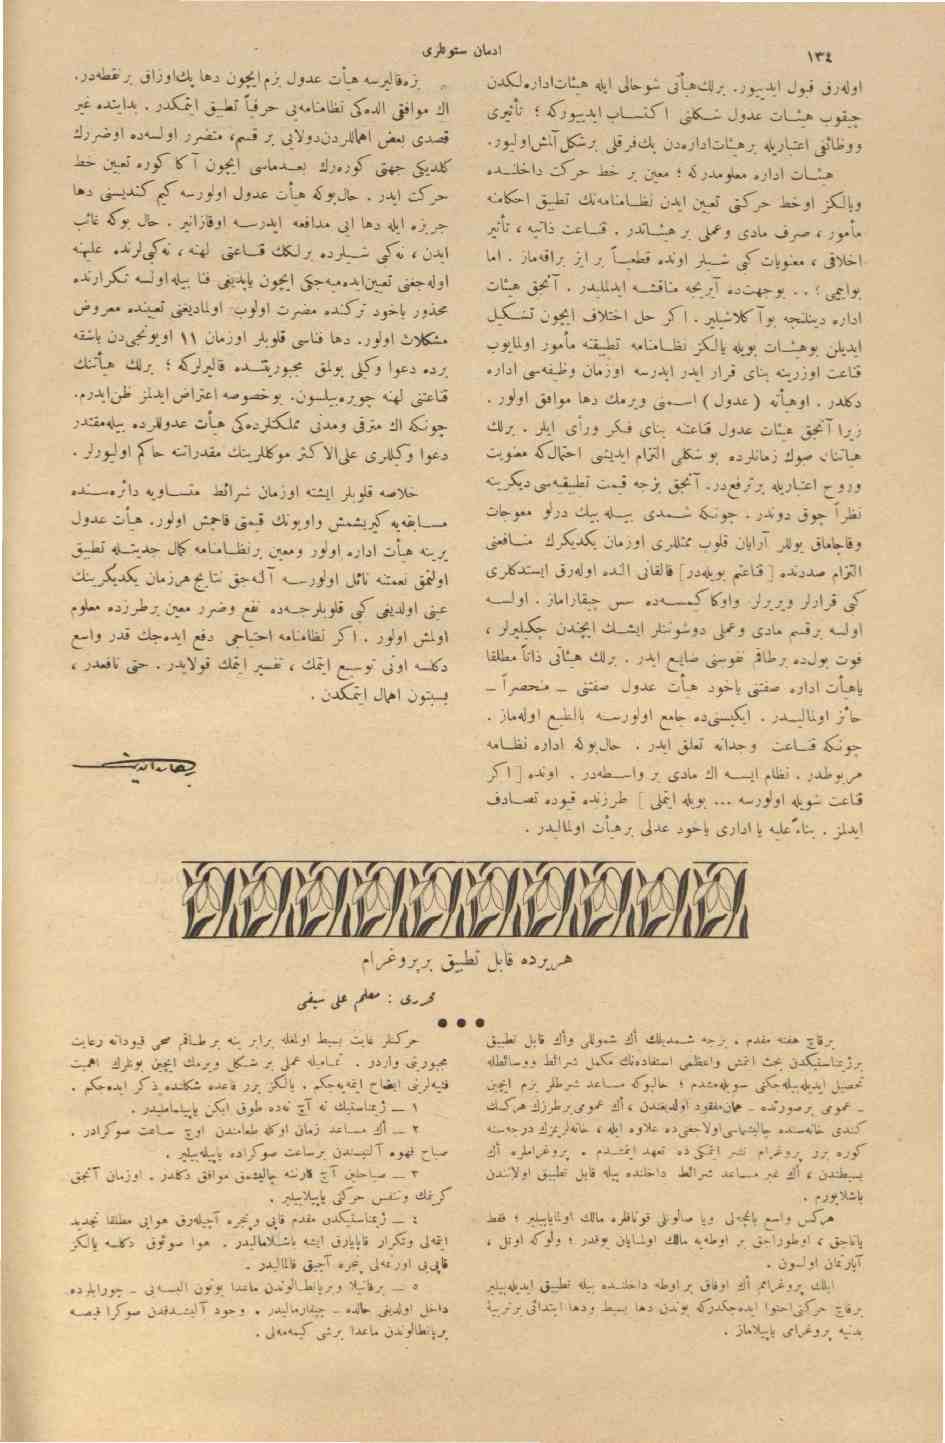 ١٣٤
ادمان ستونلری
اوله‌رق قبول ایدییور. برلك‌هیأتی شوحالی ایله هیئات‌اداره‌لكدن
چیقوب هیئات عدول شكلنی اكتساب ایدییوركه ؛ تأثیری
ووظائفی اعتباریله برهیئات‌اداره‌دن پك‌فرقلی برشكل آلمش‌اولیور.
هیئات اداره معلومدركه ؛ معین بر خط حركت داخلنده
ویالكز اوخط حركتی تعیین ایدن نظامنامه‌نك تطبیق احكامنه
مأمور ، صرف مادی وعملی برهیئاتدر . قناعت ذاتیه ، تأثیر
اخلاقی ، معنویات كبی شیلر اونده قطعیاً بر ایز براقه‌ماز . اما
بواییمی ؛ .. بوجهت‌ده آیریجه مناقشه ایدلملیدر . آنجق هیئات
اداره دینلنجه بوآكلاشیلیر . اكر حل اختلاف ایچون تشكیل
ایدیلن بوهیئات بویله یالكز نظامنامه تطبیقنه مأمور اولمایوب
قناعت اوزرینه بنای قرار ایدر ایدرسه اوزمان وظیفه‌سی اداره
دكلدر . اوهیأته (عدول) اسمنی ویرمك دها موافق اولور .
زیرا آنجق هیئات عدول قناعتنه بنای فكر ورأی ایلر . برلك
هیأتنك صوك زمانلرده بو شكلی التزام ایدیشی احتمال‌كه معنویت
وروح اعتباریله برترفع‌در. آنجق بزجه قیمت تطبیقیه‌سی دیكرینه
نظراً چوق دوندر . چونكه شمدی بیله بیك درلو معوجات
وقاچاماق یوللر آرایان قلوب ممثللری اوزمان یكدیكرك منافعنی
التزام صددنده [ قناعتم بویله‌در] قالقانی النده اوله‌رق ایستدكلری
كبی قرارلر ویریرلر واوكا كیمسه‌ده سس چیقاراماز . اولسه
اولسه برقسم مادی وعملی دوشونه‌نلر ایشك ایچندن چكیلیرلر ،
قوت یول‌ده برطاقم نفوسنی ضایع ایدر . برلك هیئاتی ذاتاً مطلقا
یاهیأت اداره صفتنی یاخود هیأت عدول صفتنی ــ منحصراً ــ
حائز اولمالیدر . ایكیسنی‌ده جامع اولورسه بالطبع اوله‌ماز .
چونكه قناعت وجدانه تعلق ایدر . حال‌بوكه اداره نظامه
مربوطدر . نظام ایسه اك مادی بر واسطه‌در . اونده [ اكر
قناعت شویله اولورسه ... بویله ایتملی ] طرزنده قیوده تصادف
ایدلمز . بناءً علیه یا اداری یاخود عدلی برهیأت اولمالیدر .
بزه‌قالیرسه هیأت عدول بزم‌ایچون دها پك‌اوزاق برنقطه‌در.
اك موافقی الده‌كی نظامنامه‌یی حرفیاً تطبیق ایتمكدر . بدایتده غیر
قصدی بعض اهماللردن‌دولایی بر قسم، متضرر اولسه‌ده اوضررك
كلدیكی جهتی كوره‌رك بعدماسی ایچون آكا كوره تعیین خط
حركت ایدر . حال‌بوكه هیأت عدول اولورسه كیم كندیسنی دها
جربزه ایله دها ایی مدافعه ایدرسه اوقازانیر . حال بوكه غائب
ایدن ، نه‌كبی شیلرده برلكك قناعتی لهنه ، نه‌كبی‌لرنده علیهنه
اوله‌جغنی تعیین‌ایده‌میه‌جكی ایچون یاپدیغی فنا بیله‌اولسه تكرارنده
محذور یاخود تركنده مضرت اولوب اولمادیغنی تعیینده معروض
مشكلات اولور. دها فناسی قلوبلر اوزمان ١١ اویونجی‌دن باشقه
برده دعوا وكیلی بولمق مجبوریتنده قالیرلركه ؛ برلك هیأتنك
قناعتنی لهنه چویره‌بیلسون. بوخصوصه اعتراض ایدلمز ظن‌ایدرم.
چونكه اك مترقی ومدنی مملكتلرده‌كی هیأت عدوللرده بیله‌مقتدر
دعوا وكیللری علی‌الاكثر موكللرینك مقدراتنه حاكم اولیورلر .
خلاصه قلوبلر ایشته اوزمان شرائط متساویه دائره‌سنده
مسابقه‌یه كیریشمش واویونك قیمتی قاچمش اولور. هیأت عدول
یرینه هیأت اداره اولور ومعین برنظامنامه كمال جدیتله تطبیق
اولنمق نعمتنه نائل اولورسه آلنه‌جق نتایج هرزمان یكدیكرینك
عینی اولدیغی كبی قلوبلرجه‌ده نفع وضرر معین برطرزده معلوم
اولمش اولور . اكر نظامنامه احتیاجی دفع ایده‌جك قدر واسع
دكلسه اونی توسیع ایتمك ، تفسیر ایتمك قولایدر . حتی نافعدر ،
بسبتون اهمال ایتمكدن .
هریرده قابل تطبیق برپروغرام
محرری : معلم علی سیفی
برقاچ هفته مقدم ، بزجه شمدیلك اك شموللی واك قابل تطبیق
برژیمناستیكدن بحث ایتمش واعظمی استفاده‌نك مكمل شرائط ووسائطله
تحصیل ایدیله‌بیله‌جكنی سویله‌مشدم ؛ حالبوكه مساعد شرطلر بزم ایچین
ــ عمومی برصورتده ــ همان‌مفقود اولدیغندن ، اك عمومی برطرزك هركسك
كندی خانه‌سنده چالیشماسی‌اولاجغنی‌ده علاوه ایله ، خانه‌لریمزك درجه‌سنه
كوره برر پروغرام نشر ایتمكی ده تعهد ایتمشدم . پروغراملره اك
بسیطندن ، اك غیر مساعد شرائط داخلنده بیله قابل تطبیق اولانندن
باشلایورم .
هركس واسع باغچه‌لی ویا صالونلی قوناقلره مالك اولمایابیلیر ؛ فقط
یاتاجق ، اوطوراجق بر اوطه‌یه مالك اولمایان یوقدر ؛ ولوكه اوتل ،
آپارتمان اولسون .
ایلك پروغرامم اك اوفاق براوطه داخلنده بیله تطبیق ایدیله‌بیلیر
برقاچ حركتی‌احتوا ایده‌جكدركه بوندن دها بسیط ودها ابتدائی برتربیهٔ
بدنیه پروغرامی یاپیلاماز .
حركتلر غایت بسیط اولمغله برابر ینه برطاقم صحی قیوداته رعایت
مجبوریتی واردر . تمامیله عملی بر شكل ویرمك ایچین بونلرك اهمیت
فنیه‌لرینی ایضاح ایتمه‌یه‌جكم . یالكز برر قاعده شكلنده ذكر ایده‌جكم .
١ ــ ژیمناستیك نه آچ نه‌ده طوق ایكن یاپیلمامالیدر .
٢ ــ اك مساعد زمان اوكله طعامندن اوچ ساعت صوكرادر .
صباح قهوه آلتیسندن برساعت صوكراده یاپیله‌بیلیر .
٣ ــ صباحلین آچ قارننه چالیشمق موافق دكلدر . اوزمان آنجق
كرینمك وتنفس حركتی یاپیلابیلیر .
٤ ــ ژیمناستیكدن مقدم قاپی وپنجره آچیله‌رق هوایی مطلقا تجدید
ایتمه‌لی وتكرار قاپایارق ایشه باشلامالیدر . هوا صوئوق دكلسه یالكز
قاپی‌یی اورتمه‌لی پنجره آچیق قالمالیدر .
٥ ــ برفانیلا وبرپانطالوندن ماعدا بوتون البسه‌یی ــ چورابلرده
داخل اولدیغی حالده ــ چیقارمالیدر . وجود آلیشدقدن صوكرا قیصه
برپانطالوندن ماعدا برشی كیمه‌مه‌لی .